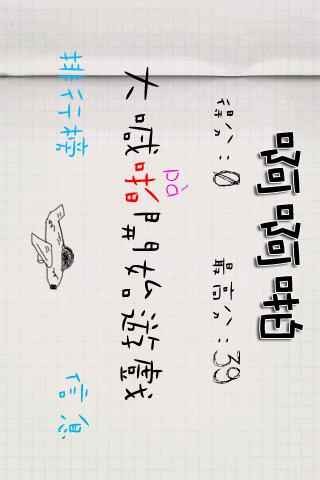 啊啊啪
得分：0 最高分：39
pa
大喊啪開始遊戲
排行榜 信息